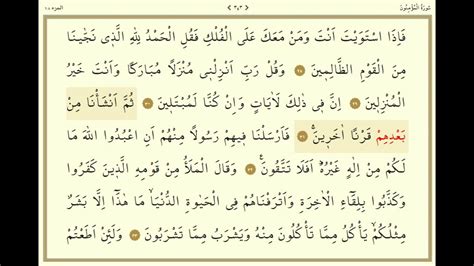 سُورَةُ الْمُؤْمِنُونَ ٣٤٣ الجزء ١٨
فَإِذَا اسْتَوَيْتَ أَنْتَ وَمَنْ مَعَكَ عَلَى الْفُلْكِ فَقُلِ الْحَمْدُ لِلَّهِ الَّذِي نَجَّيٰنَا
مِنَ الْقَوْمِ الظَّالِمِينَ ﴿٢٨﴾ وَقُلْ رَبِّ أَنْزِلْنِي مُنْزَلًا مُبَارَكًا وَأَنْتَ خَيْرُ
الْمُنْزِلِينَ ﴿٢٩﴾ إِنَّ فِي ذٰلِكَ لَآيَاتٍ وَإِنْ كُنَّا لَمُبْتَلِينَ ﴿٣٠﴾ ثُمَّ أَنْشَأْنَا مِنْ
بَعْدِهِمْ قَرْنًا آخَرِينَ ﴿٣١﴾ فَأَرْسَلْنَا فِيهِمْ رَسُولًا مِنْهُمْ أَنِ اعْبُدُوا اللّٰهَ مَا
لَكُمْ مِنْ إِلٰهٍ غَيْرُهُ أَفَلَا تَتَّقُونَ ﴿٣٢﴾ وَقَالَ الْمَلَأُ مِنْ قَوْمِهِ الَّذِينَ كَفَرُوا
وَكَذَّبُوا بِلِقَاءِ الْآخِرَةِ وَأَتْرَفْنَاهُمْ فِي الْحَيٰوةِ الدُّنْيَا مَا هٰذَا إِلَّا بَشَرٌ
مِثْلُكُمْ يَأْكُلُ مِمَّا تَأْكُلُونَ مِنْهُ وَيَشْرَبُ مِمَّا تَشْرَبُونَ ﴿٣٣﴾ وَلَئِنْ أَطَعْتُمْ